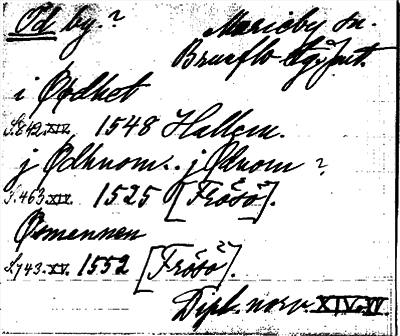 Öd by?
Marieby sn.
Brunflo tg. Jmt.
i Ødhet
S. 842.XIV. 1548 Hallom.
j Ødhuom.. j Øduom?
S. 463.XIV. 1525 [Frösö].
Ømennen
S. 743.XV. 1552 [Frösö].
Dipl. norv. XIV-XV